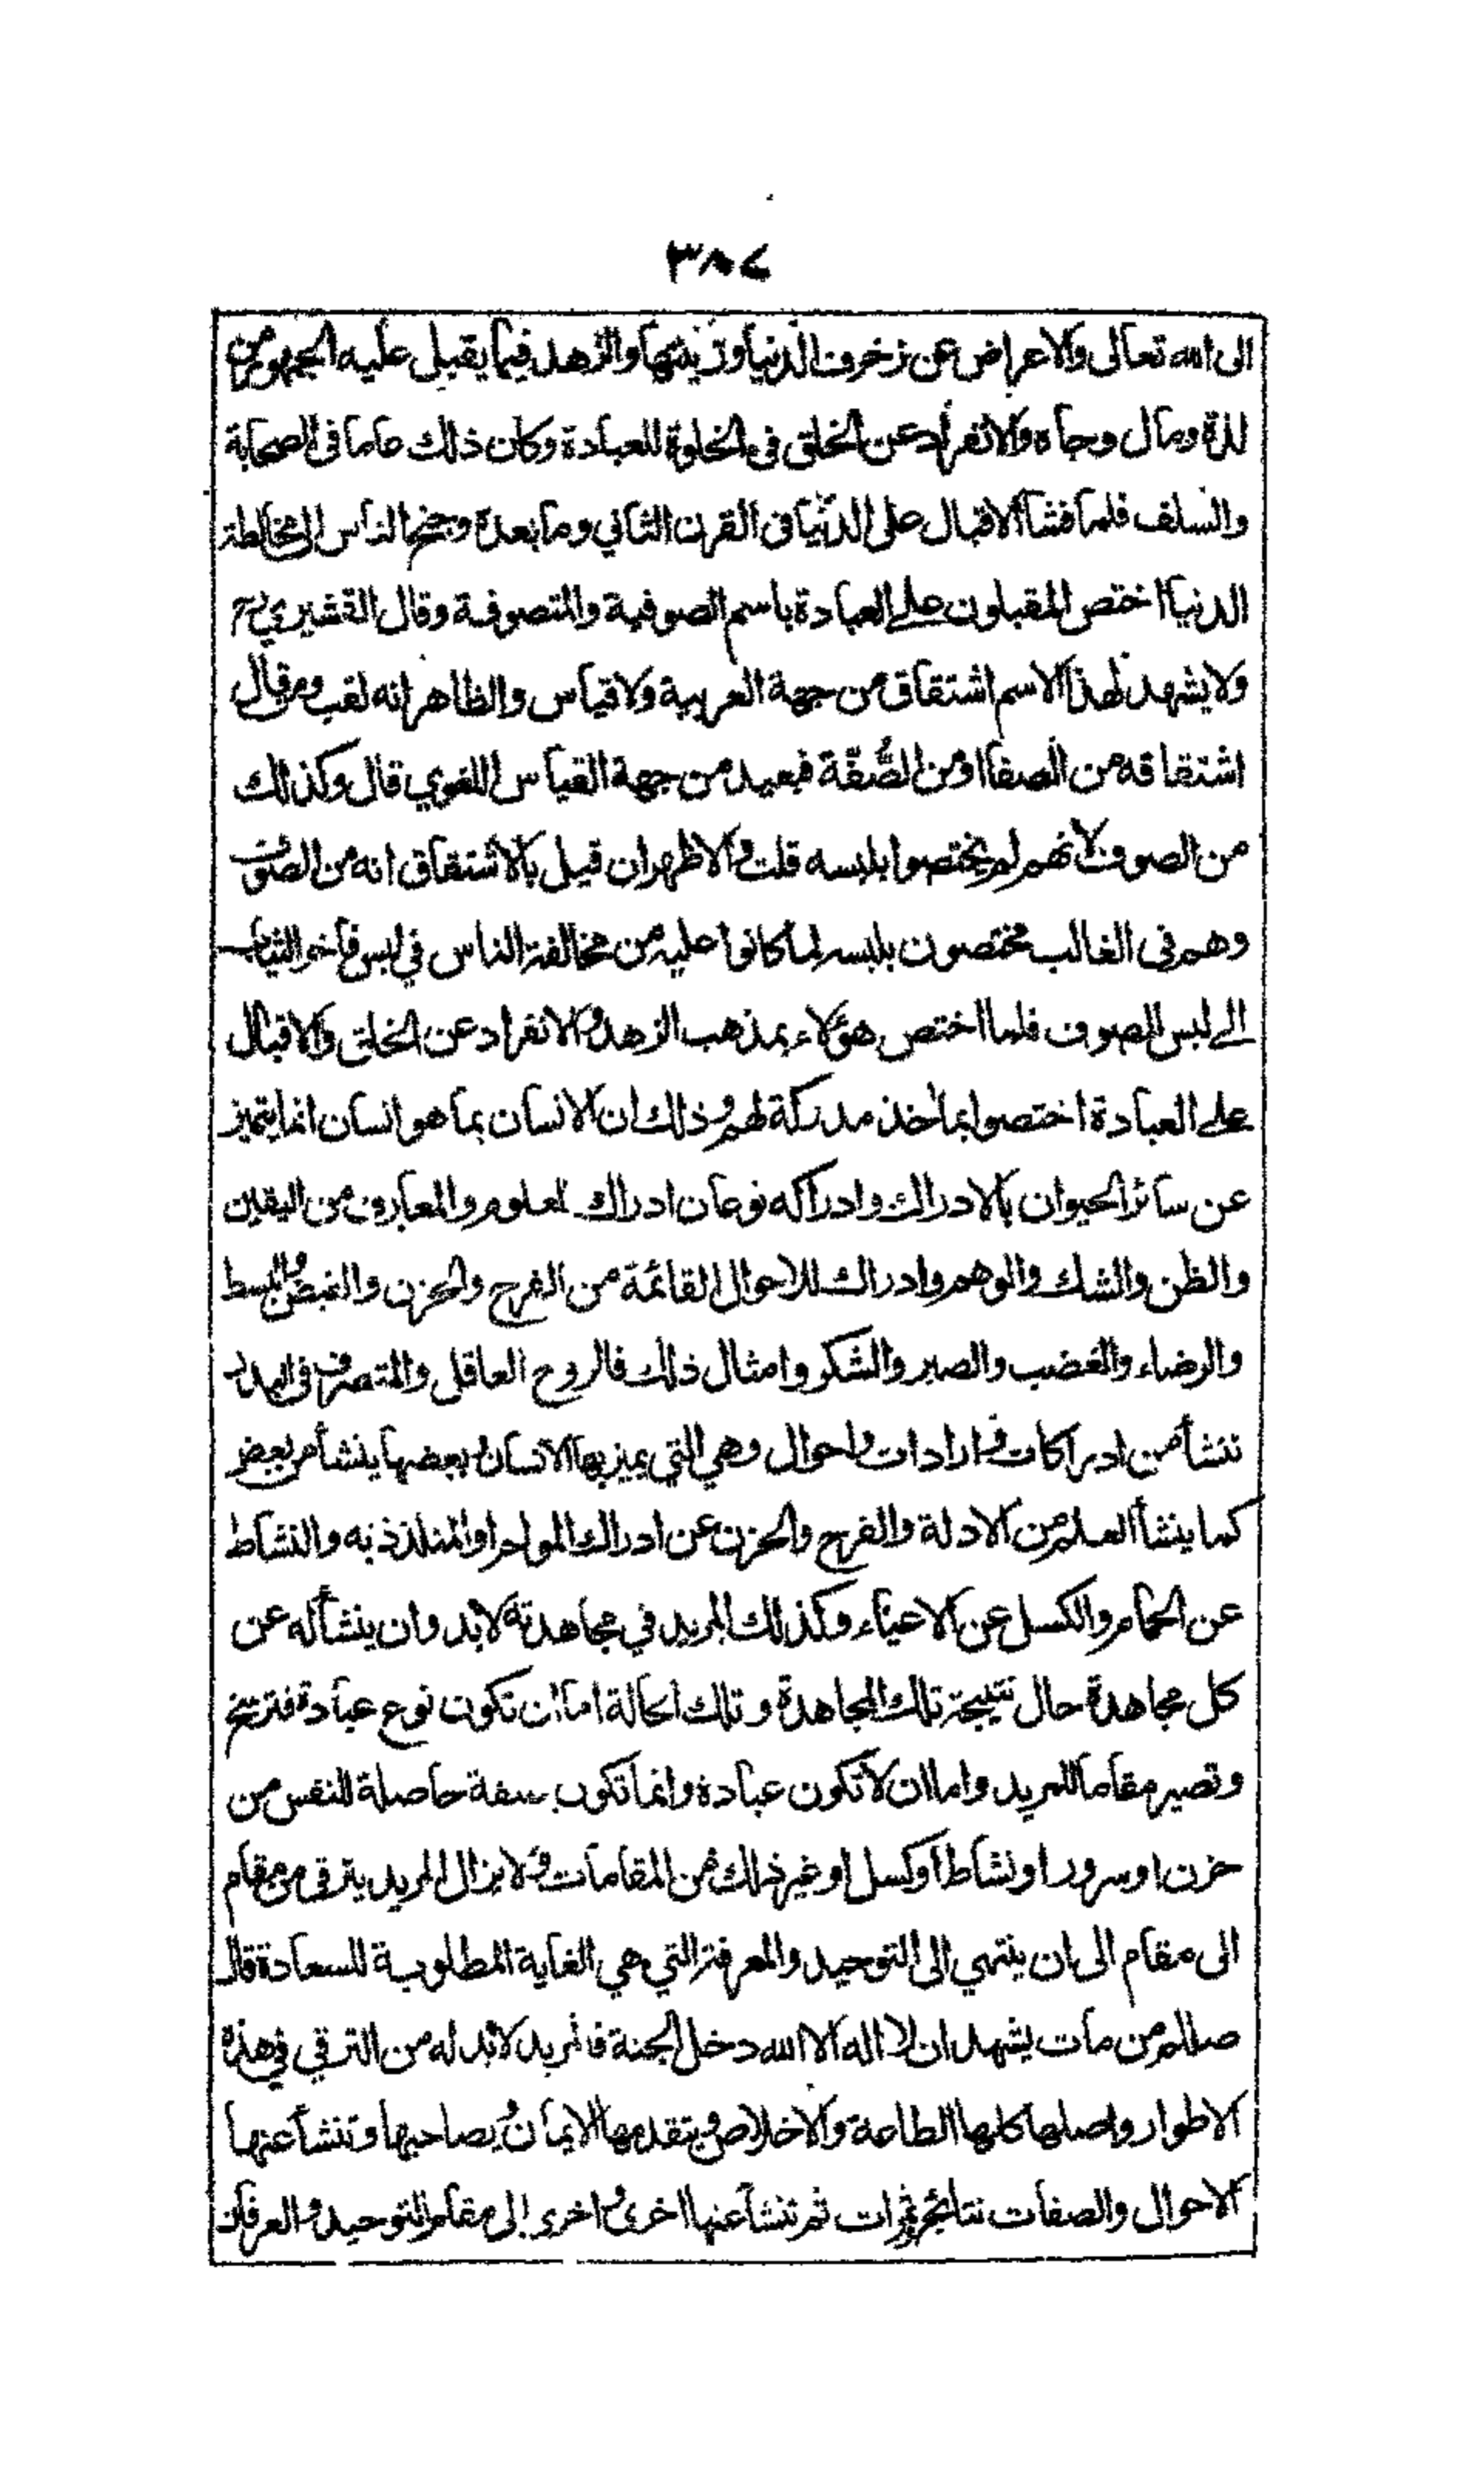 ٣٨٧
الى الله تعالى والاعراض عن زخرف الدنيا وزينتها والزهد فيما يقبل عليه الجمهور من
لذة ومال وجاه والانفراد عن الخلق في الخلوة للعبادة وكان ذلك عاما في الصحابة
والسلف فلما فشا الاقبال على الدنيا في القرن الثاني وما بعده وجنح الناس الى مخالطة
الدنيا اختص المقبلون على العبادة باسم الصوفية والمتصوفة وقال القشيري رح
ولا يشهد لهذا الاسم اشتقاق من جهة العربية ولا قياس والظاهر انه لقب ومن قال
اشتقاقه من الصفا او من الصُّفّة فبعيد من جهة القياس اللغوي قال وكذلك
من الصوف لانهم لم يختصوا بلبسه قلت والاظهر ان قيل بالاشتقاق انه من الصوف
وهم في الغالب مختصون بلبسه لما كانوا عليه من مخالفة الناس في لبس فاخر الثياب
الى لبس الصوف فلما اختص هؤلاء بمذهب الزهد والانفراد عن الخلق والاقبال
على العبادة اختصوا بمآخذ مدركة لهم وذلك ان الانسان بما هو انسان انما يتميز
عن سائر الحيوان بالادراك وادراكه نوعان ادراك لعلوم والمعارف من اليقين
والظن والشك والوهم وادراك للاحوال القائمة من الفرح والحزن والقبض والبسط
والرضاء والغضب والصبر والشكر وامثال ذلك فالروح العاقل والمتصرف في البدن
تنشأ من ادراكات وارادات واحوال وهي التي يميز بها الانسان وبعضها ينشأ من بعض
كما ينشأ العلم من الادلة والفرح والحزن عن ادراك المولم او المتلذذ به والنشاط
عن الحمام والكسل عن الاعياء وكذلك المريد في مجاهدته لا بد وان ينشأ له عن
كل مجاهدة حال نتيجة تلك المجاهدة وتلك الحالة اما ان تكون نوع عبادة فترسخ
وتصير مقاما للمريد واما ان لا تكون عبادة وانما تكون صفة حاصلة للنفس من
حزن او سرور او نشاط او كسل او غير ذلك من المقامات ولا يزال المريد يترقى من مقام
الى مقام الى ان ينتهي الى التوحيد والمعرفة التي هي الغاية المطلوبة للسعادة قال
صللم من مات يشهد ان لا اله الا الله دخل الجنة فالمريد لا بد له من الترقي في هذه
الاطوار واصلها كلها الطاعة والاخلاص ويتقدمها الايمان ويصاحبها وتنشأ عنها
الاحوال والصفات نتائج وثمرات ثم تنشأ عنها اخرى واخرى الى مقام التوحيد والعرفان